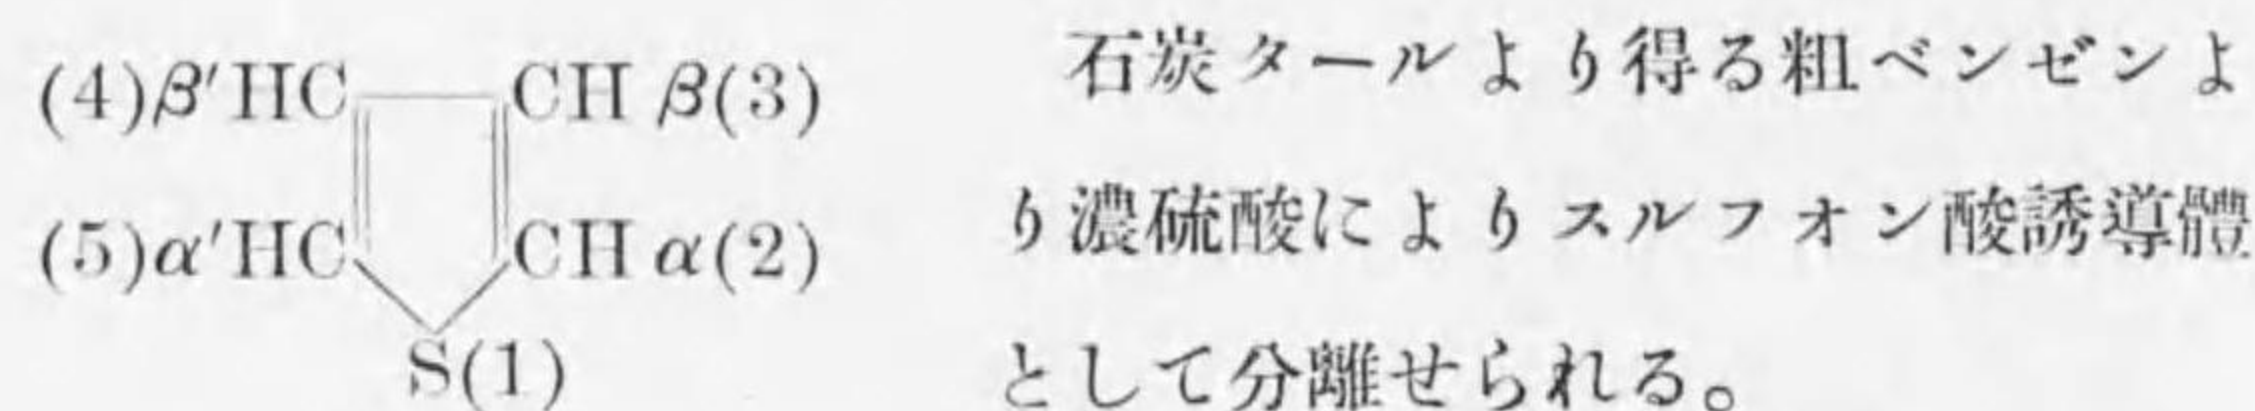 (4)β′HC CH β(3)
(5)α′HC CH α(2)
S(1)
石炭タールより得る粗ベンゼンよ
り濃硫酸によりスルフオン酸誘導體
として分離せられる。